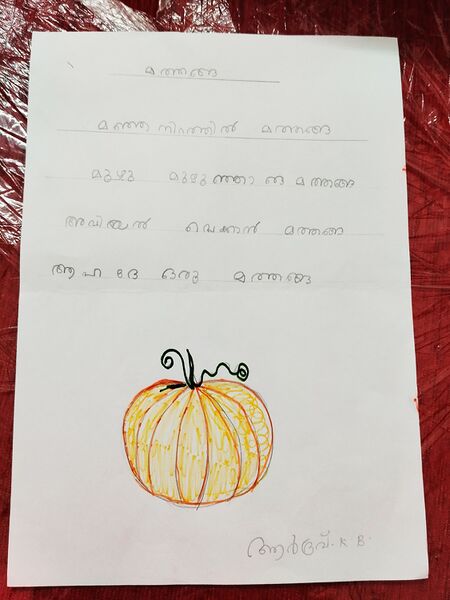 മത്തങ്ങ
മഞ്ഞ നിറത്തിൽ മത്തങ്ങ
മുഴു മുഴുഞ്ഞൊരു മത്തങ്ങ
അവിയൽ വെക്കാൻ മത്തങ്ങ
ആഹ ദേ ഒരു മത്തങ്ങ
ആർദ്രവ്. K. B.